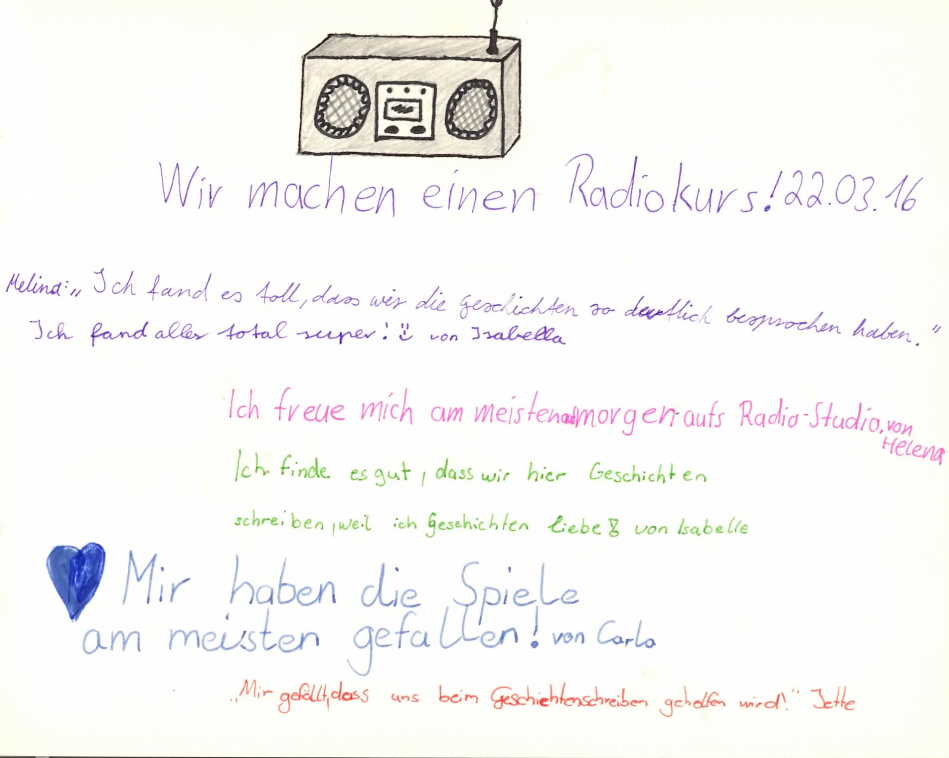 Wir machen einen Radiokurs! 22.03.16
Melina: „Ich fand es toll, dass wir die geschichten so deutlich besprochen haben."
Ich fand alles total super! :) von Isabella
Ich freue mich am meisten morgen aufs Radio-Studio, von
Helena
Ich finde es gut, dass wir hier Geschichten
schreiben, weil ich Geschichten liebe! von Isabelle
Mir haben die Spiele
am meisten gefallen! von Carla
„Mir gefällt, dass uns beim Geschichtenschreiben geholfen wird!" Jette